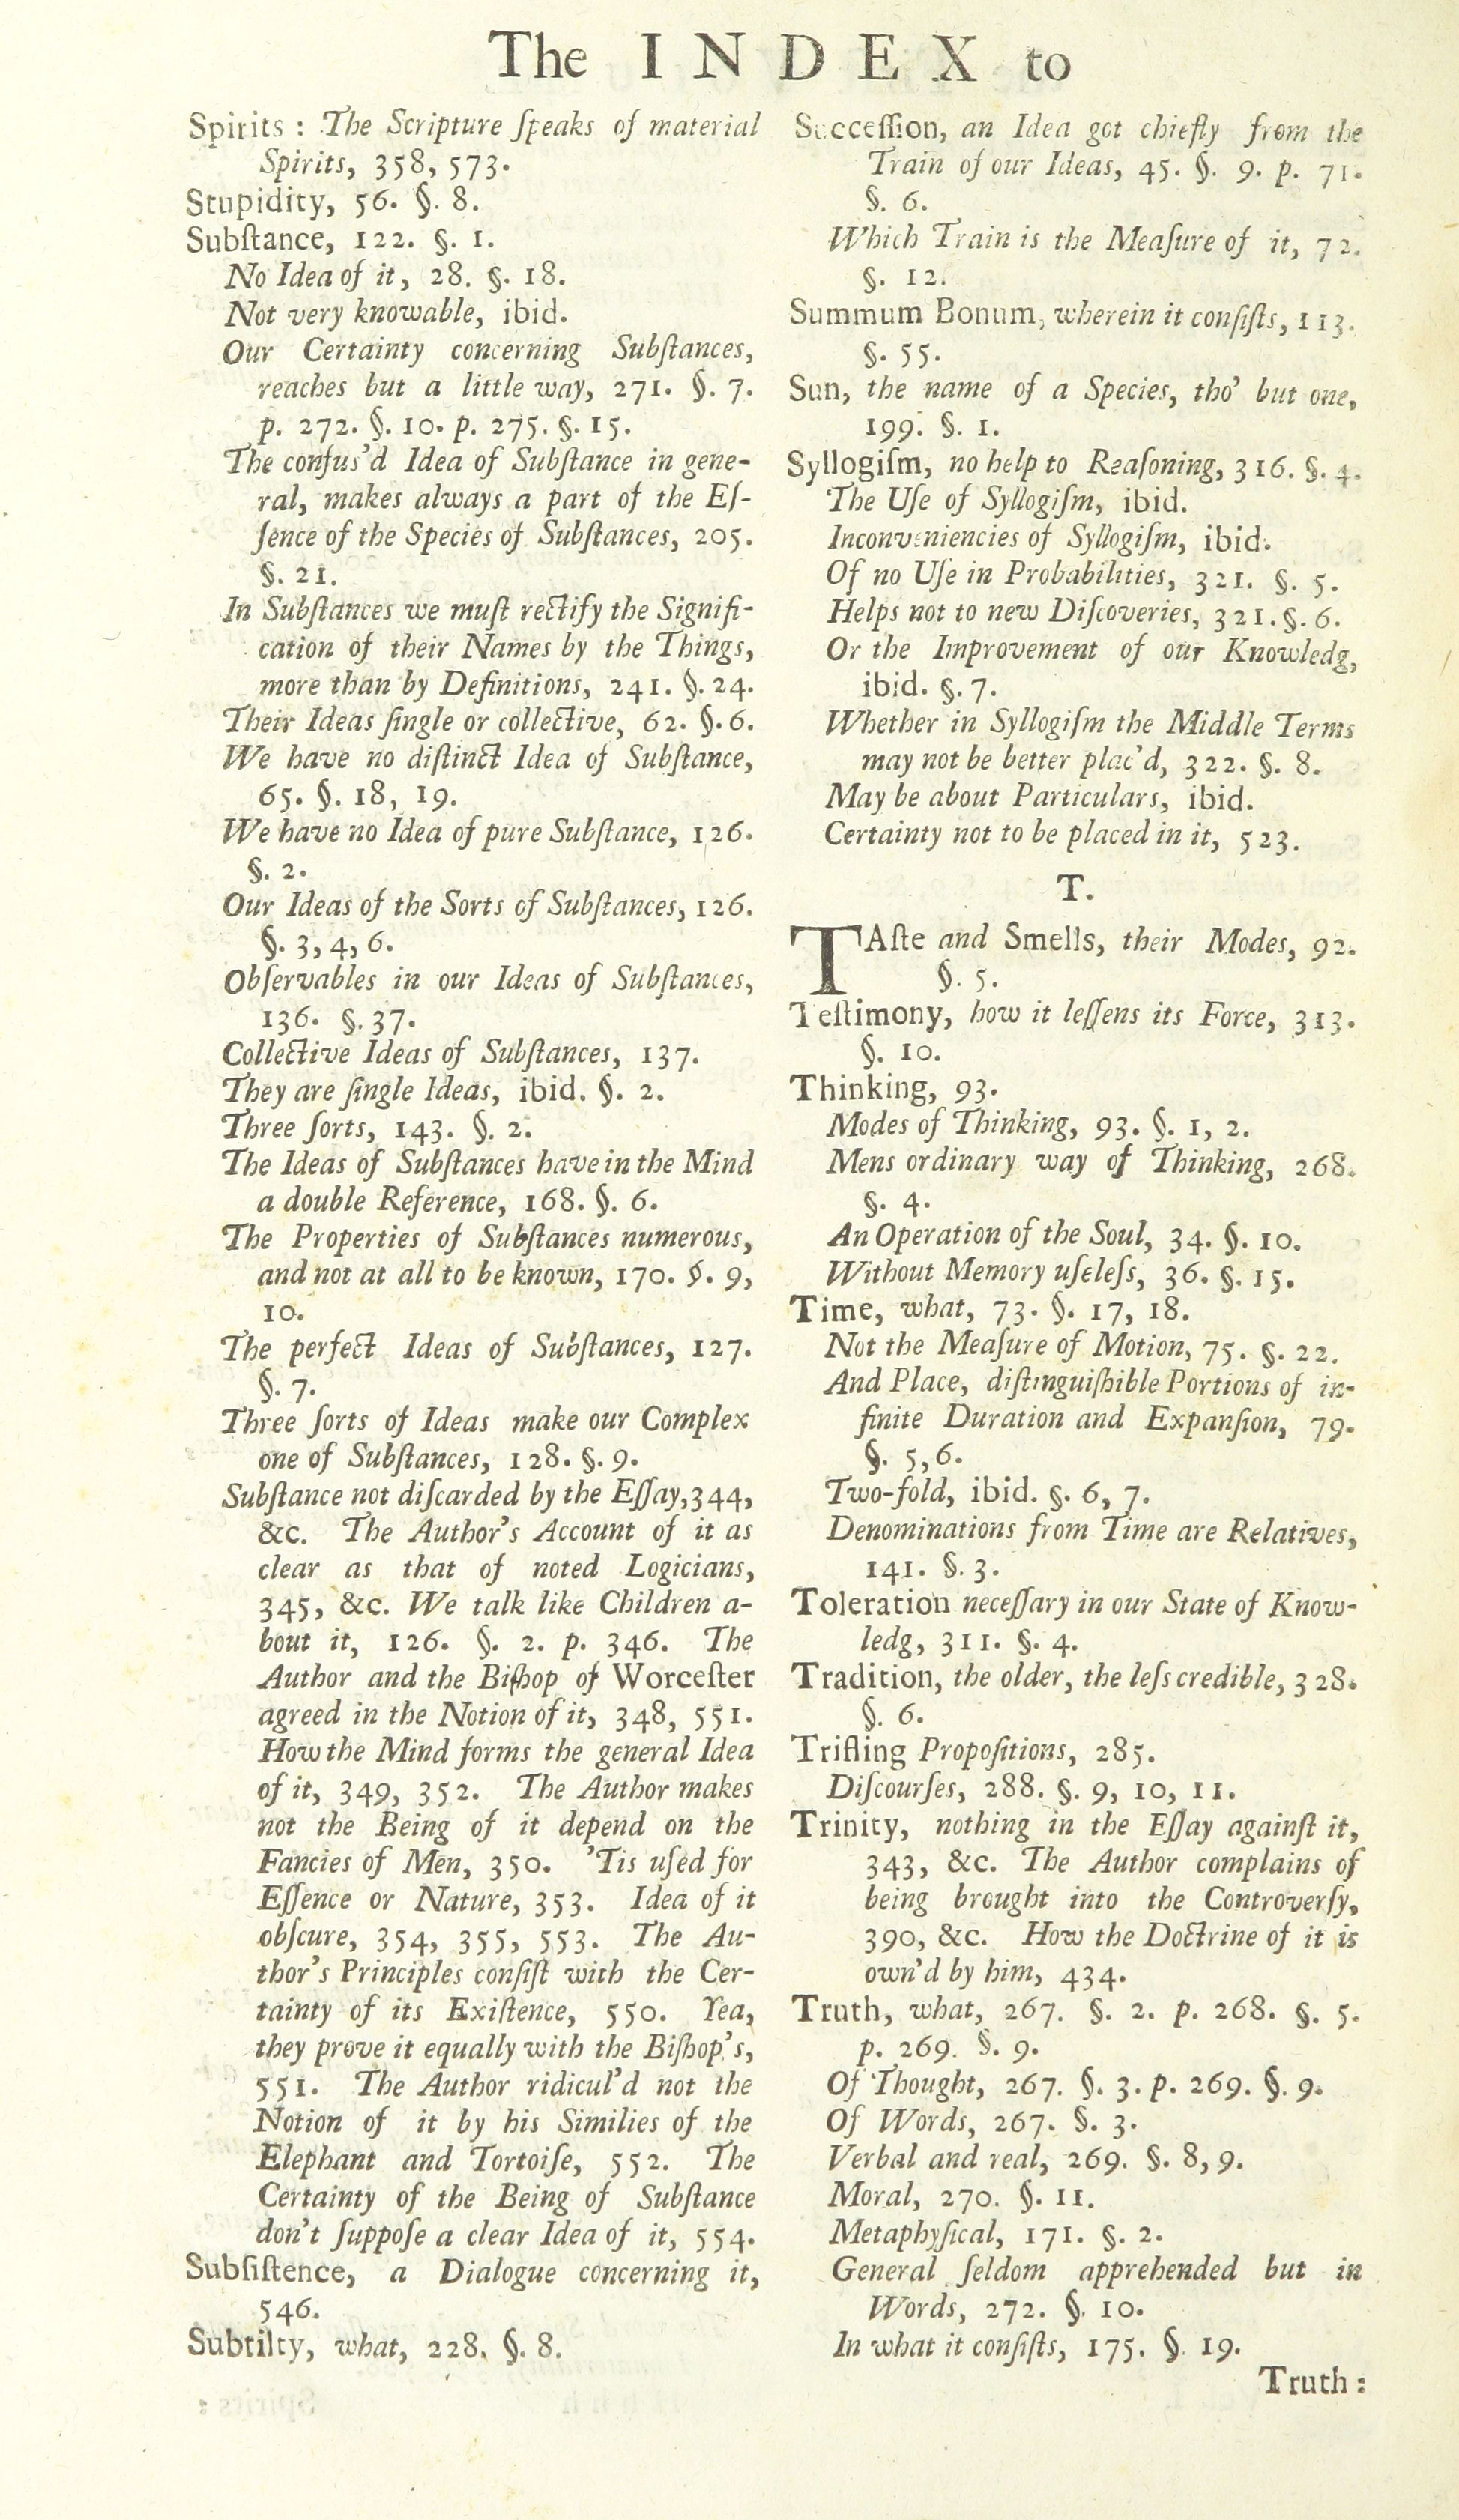 The INDEX to
Spirits : The Scripture ſpeaks of material
Spirits, 358, 573.
Stupidity, 56. §. 8.
Subſtance, 122. §. 1.
No Idea of it, 28. §. 18.
Not very knowable, ibid.
Our Certainty concerning Subſtances,
reaches but a little way, 271. §. 7.
p. 272. §. 10. p. 275. §. 15.
The confus'd Idea of Subſtance in gene-
ral, makes always a part of the Eſ-
ſence of the Species of Subſtances, 205.
§. 21.
In Subſtances we muſt rectify the Signifi-
cation of their Names by the Things,
more than by Definitions, 241. §. 24.
Their Ideas ſingle or collective, 62. §. 6.
We have no diſtinct Idea of Subſtance,
65. §. 18, 19.
We have no Idea of pure Subſtance, 126.
§. 2.
Our Ideas of the Sorts of Subſtances, 126.
§. 3, 4, 6.
Obſervables in our Ideas of Subſtances,
136. §. 37.
Collective Ideas of Subſtances, 137.
They are ſingle Ideas, ibid. §. 2.
Three ſorts, 143. §. 2.
The Ideas of Subſtances have in the Mind
a double Reference, 168. §. 6.
The Properties of Subſtances numerous,
and not at all to be known, 170. §. 9,
10.
The perfect Ideas of Subſtances, 127.
§. 7.
Three ſorts of Ideas make our Complex
one of Subſtances, 128. §. 9.
Subſtance not diſcarded by the Eſſay, 344,
&c. The Author's Account of it as
clear as that of noted Logicians,
345, &c. We talk like Children a-
bout it, 126. §. 2. p. 346. The
Author and the Biſhop of Worceſter
agreed in the Notion of it, 348, 551.
How the Mind forms the general Idea
of it, 349, 352. The Author makes
not the Being of it depend on the
Fancies of Men, 350. 'Tis uſed for
Eſſence or Nature, 353. Idea of it
obſcure, 354, 355, 553. The Au-
thor's Principles conſiſt with the Cer-
tainty of its Exiſtence, 550. Yea,
they prove it equally with the Biſhop's,
551. The Author ridicul'd not the
Notion of it by his Similies of the
Elephant and Tortoiſe, 552. The
Certainty of the Being of Subſtance
don't ſuppoſe a clear Idea of it, 554.
Subſiſtence, a Dialogue concerning it,
546.
Subtilty, what, 228. §. 8.
Succeſſion, an Idea got chiefly from the
Train of our Ideas, 45. §. 9. p. 71.
§. 6.
Which Train is the Meaſure of it, 72.
§. 12.
Summum Bonum, wherein it conſiſts, 113.
§. 55.
Sun, the name of a Species, tho' but one,
199. §. 1.
Syllogiſm, no help to Reaſoning, 316. §. 4.
The Uſe of Syllogiſm, ibid.
Inconveniencies of Syllogiſm, ibid.
Of no Uſe in Probabilities, 321. §. 5.
Helps not to new Diſcoveries, 321. §. 6.
Or the Improvement of our Knowledg,
ibid. §. 7.
Whether in Syllogiſm the Middle Terms
may not be better plac'd, 322. §. 8.
May be about Particulars, ibid.
Certainty not to be placed in it, 523.
T.
TAſte and Smells, their Modes, 92.
§. 5.
Teſtimony, how it leſſens its Force, 313.
§. 10.
Thinking, 93.
Modes of Thinking, 93. §. 1, 2.
Mens ordinary way of Thinking, 268.
§. 4.
An Operation of the Soul, 34. §. 10.
Without Memory uſeleſs, 36. §. 15.
Time, what, 73. §. 17, 18.
Not the Meaſure of Motion, 75. §. 22.
And Place, diſtinguiſhible Portions of in-
finite Duration and Expanſion, 79.
§. 5, 6.
Two-fold, ibid. §. 6, 7.
Denominations from Time are Relatives,
141. §. 3.
Toleration neceſſary in our State of Know-
ledg, 311. §. 4.
Tradition, the older, the leſs credible, 328.
§. 6.
Trifling Propoſitions, 285.
Diſcourſes, 288. §. 9, 10, 11.
Trinity, nothing in the Eſſay againſt it,
343, &c. The Author complains of
being brought into the Controverſy,
390, &c. How the Doctrine of it is
own'd by him, 434.
Truth, what, 267. §. 2. p. 268. §. 5.
p. 269. §. 9.
Of Thought, 267. §. 3. p. 269. §. 9.
Of Words, 267. §. 3.
Verbal and real, 269. §. 8, 9.
Moral, 270. §. 11.
Metaphyſical, 171. §. 2.
General ſeldom apprehended but in
Words, 272. §. 10.
In what it conſiſts, 175. §. 19.
Truth :